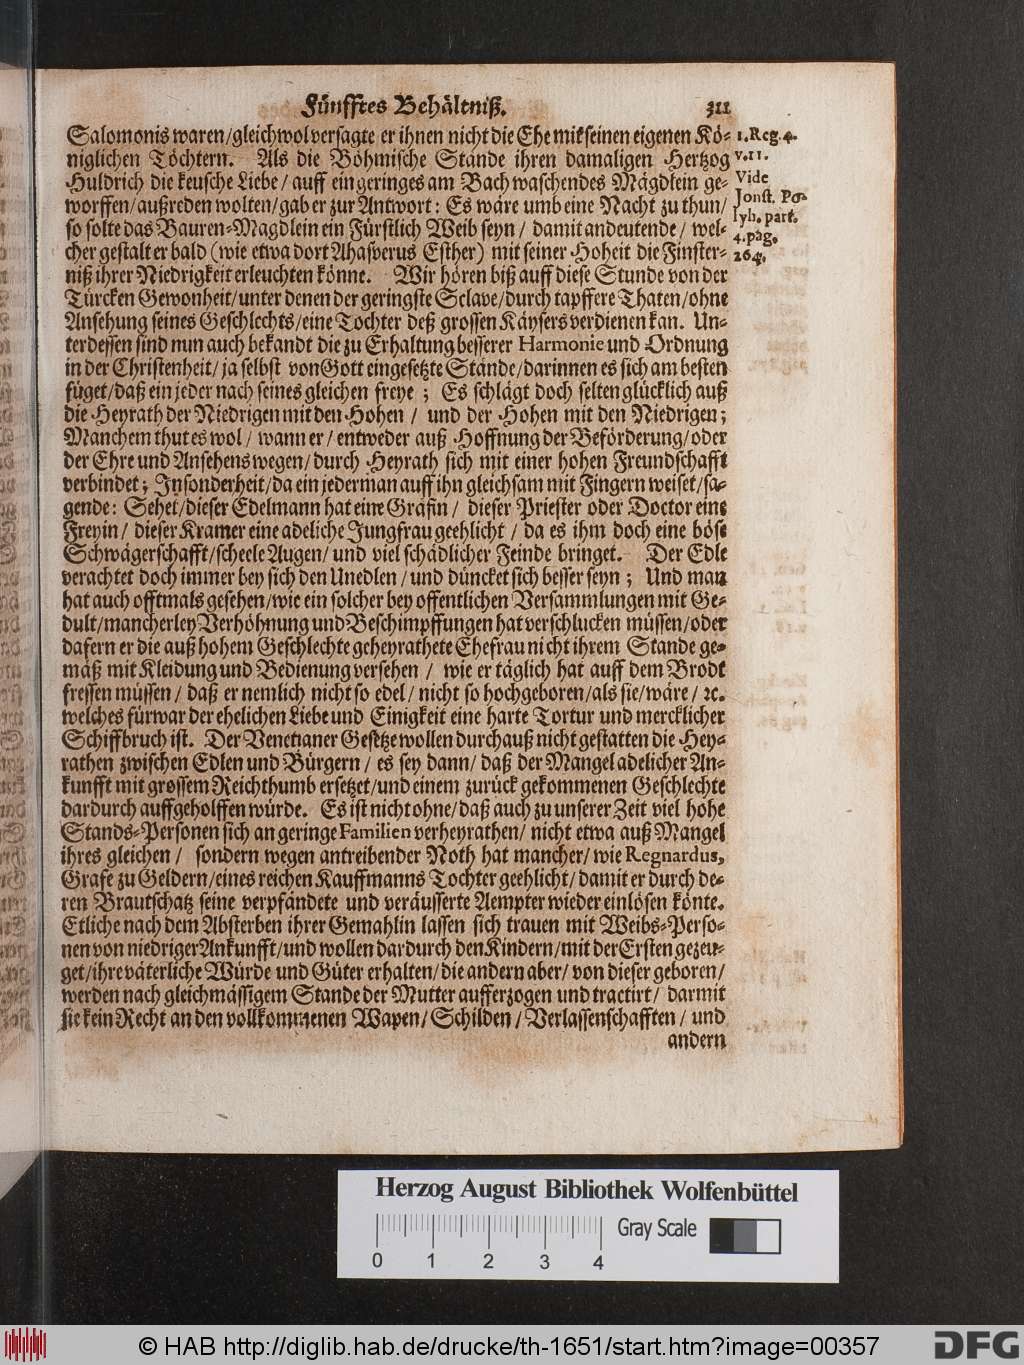 Fünfftes Behältniß. 311
Salomonis waren/gleichwol versagte er ihnen nicht die Ehe mit seinen eigenen Kö-
niglichen Töchtern. Als die Böhmische Stände ihren damaligen Hertzog
Huldrich die keusche Liebe/ auff ein geringes am Bach waschendes Mägdlein ge-
worffen/außreden wolten/gab er zur Antwort: Es wäre umb eine Nacht zu thun/
so solte das Bauren-Magdlein ein Fürstlich Weib seyn/ damit andeutende/ wel-
cher gestalt er bald (wie etwa dort Ahasverus Esther) mit seiner Hoheit die Finster-
niß ihrer Niedrigkeit erleuchten könne. Wir hören biß auff diese Stunde von der
Türcken Gewonheit/unter denen der geringste Sclave/durch tapffere Thaten/ohne
Ansehung seines Geschlechts/eine Tochter deß grossen Käysers verdienen kan. Un-
terdessen sind nun auch bekandt die zu Erhaltung besserer Harmonie und Ordnung
in der Christenheit/ja selbst von Gott eingesetzte Stände/darinnen es sich am besten
füget/daß ein jeder nach seines gleichen freye; Es schlägt doch selten glücklich auß
die Heyrath der Niedrigen mit den Hohen/ und der Hohen mit den Niedrigen;
Manchem thut es wol/ wann er/entweder auß Hoffnung der Beförderung/oder
der Ehre und Ansehens wegen/durch Heyrath sich mit einer hohen Freundschafft
verbindet; Insonderheit/da ein jederman auff ihn gleichsam mit Fingern weiset/sa-
gende: Sehet/dieser Edelmann hat eine Gräfin/ dieser Priester oder Doctor eine
Freyin/ dieser Kramer eine adeliche Jungfrau geehlicht/ da es ihm doch eine böse
Schwägerschafft/scheele Augen/ und viel schädlicher Feinde bringet. Der Edle
verachtet doch immer bey sich den Unedlen/und düncket sich besser seyn; Und man
hat auch offtmals gesehen/wie ein solcher bey offentlichen Versammlungen mit Ge-
dult/mancherley Verhöhnung und Beschimpffungen hat verschlucken müssen/oder
dafern er die auß hohem Geschlechte geheyrathete Ehefrau nicht ihrem Stande ge-
mäß mit Kleidung und Bedienung versehen/ wie er täglich hat auff dem Brodt
fressen müssen/ daß er nemlich nicht so edel/ nicht so hochgeboren/als sie/wäre/ ꝛc.
welches fürwar der ehelichen Liebe und Einigkeit eine harte Tortur und mercklicher
Schiffbruch ist. Der Venetianer Gesetze wollen durchauß nicht gestatten die Hey-
rathen zwischen Edlen und Bürgern/ es sey dann/ daß der Mangel adelicher An-
kunfft mit grossem Reichthumb ersetzet/und einem zurück gekommenen Geschlechte
dardurch auffgeholffen würde. Es ist nicht ohne/daß auch zu unserer Zeit viel hohe
Stands-Personen sich an geringe Familien verheyrathen/ nicht etwa auß Mangel
ihres gleichen/ sondern wegen antreibender Noth hat mancher/ wie Regnardus,
Grafe zu Geldern/eines reichen Kauffmanns Tochter geehlicht/damit er durch de-
ren Brautschatz seine verpfändete und veräusserte Aempter wieder einlösen könte.
Etliche nach dem Absterben ihrer Gemahlin lassen sich trauen mit Weibs-Perso-
nen von niedriger Ankunfft/und wollen dardurch den Kindern/mit der Ersten gezeu-
get/ihre väterliche Würde und Güter erhalten/die andern aber/ von dieser geboren/
werden nach gleichmässigem Stande der Mutter aufferzogen und tractirt/ darmit
sie kein Recht an den vollkommenen Wapen/Schilden/Verlassenschafften/ und
andern
1. Reg. 4.
v. 11.
Vide
Jonst. Po-
lyh. part.
4. pag.
264.
Herzog August Bibliothek Wolfenbüttel
Gray Scale
0 1 2 3 4
© HAB http://diglib.hab.de/drucke/th-1651/start.htm?image=00357
DFG